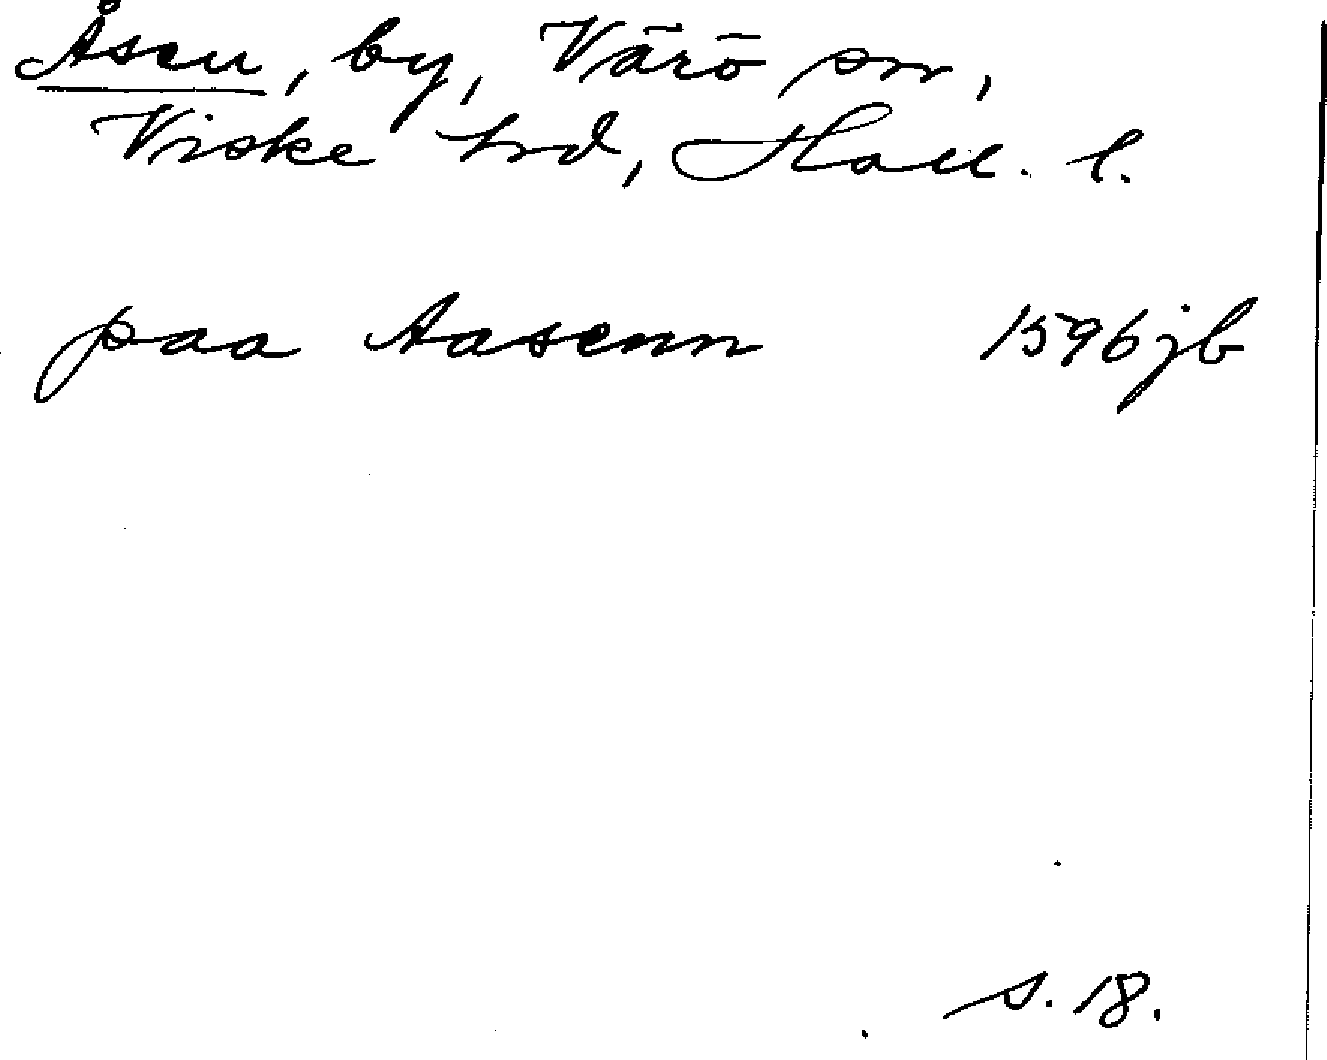 Åsen, by, Värö sn,
Viske hrd, Hall. l.
paa Aasenn 1596 jb
s. 18.